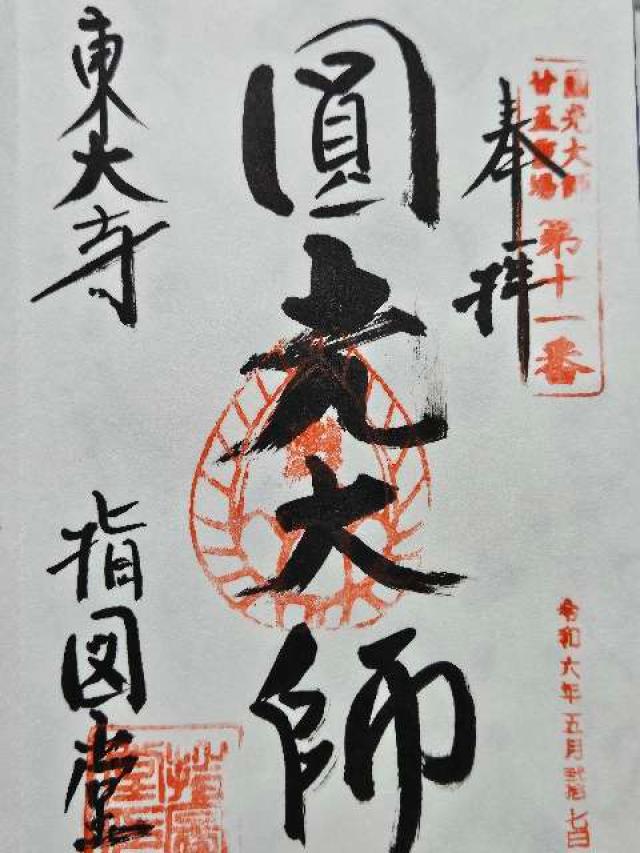 圓光大師
廿五霊場
第十一番
奉拝
圓光大師
東大寺
指図堂
令和六年五月弐拾七日